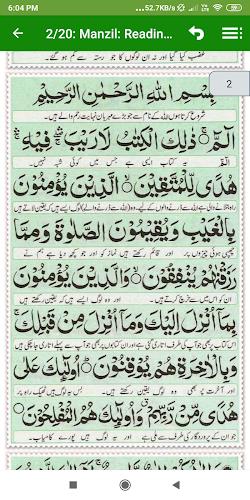 6:04 PM ... 52.7KB/s
2/20: Manzil: Readin...
غضب کیا گیا اور نہ ان لوگوں کا جو رستہ سے گم ہو گئے۔
2
بِسْمِ اللهِ الرَّحْمٰنِ الرَّحِيْمِ
شروع کرتا ہوں اللہ کے نام سے جو بڑے مہربان نہایت رحم والے ہیں۔
الٓمّٓ ۚ ذٰلِكَ الْكِتٰبُ لَا رَيْبَ ۛ فِيْهِ ۛ
یہ کتاب ایسی ہے جس میں کوئی شبہ نہیں۔
هُدًى لِّلْمُتَّقِيْنَ ۙ الَّذِيْنَ يُؤْمِنُوْنَ
راہ بتلانے والی ہے اللہ سے ڈرنے والوں کو۔ وہ لوگ ایسے ہیں کہ یقین لاتے ہیں
بِالْغَيْبِ وَيُقِيْمُوْنَ الصَّلٰوةَ وَمِمَّا
چھپی ہوئی چیزوں پر اور قائم رکھتے ہیں نماز کو اور جو کچھ دیا ہے ہم نے
رَزَقْنٰهُمْ يُنْفِقُوْنَ ۙ وَالَّذِيْنَ يُؤْمِنُوْنَ
ان کو اس میں سے خرچ کرتے ہیں۔ اور وہ لوگ ایسے ہیں کہ یقین رکھتے ہیں
بِمَآ اُنْزِلَ اِلَيْكَ وَمَآ اُنْزِلَ مِنْ قَبْلِكَ ۚ
وَبِالْاٰخِرَةِ هُمْ يُوْقِنُوْنَ ؕ اُولٰٓئِكَ عَلٰى
اور آخرت پر بھی وہ لوگ یقین رکھتے ہیں۔ بس یہ لوگ ہیں ٹھیک راہ پر
هُدًى مِّنْ رَّبِّهِمْ ۗ وَاُولٰٓئِكَ هُمُ الْمُفْلِحُوْنَ
جو ان کے پروردگار کی طرف سے ملی ہے اور یہ لوگ ہیں پورے کامیاب۔